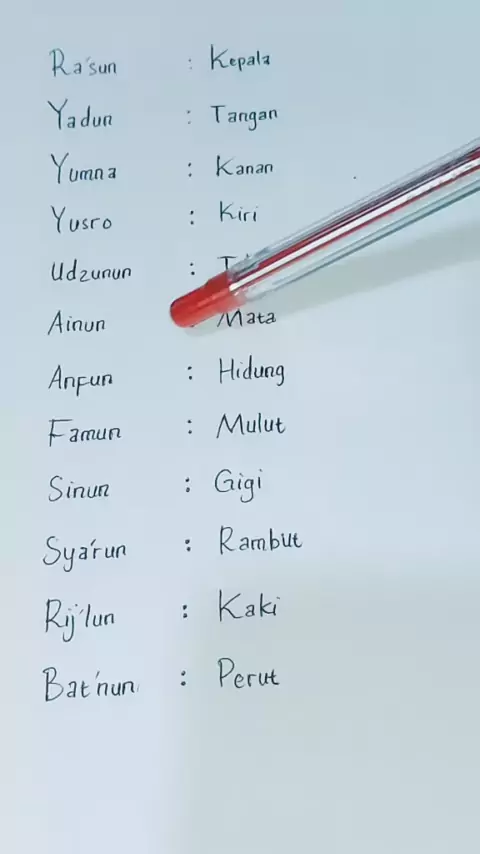 Ra'sun : Kepala
Yadun : Tangan
Yumna : Kanan
Yusro : Kiri
Udzunun :
Ainun : Mata
Anfun : Hidung
Famun : Mulut
Sinun : Gigi
Sya'run : Rambut
Rij'lun : Kaki
Bat'nun : Perut